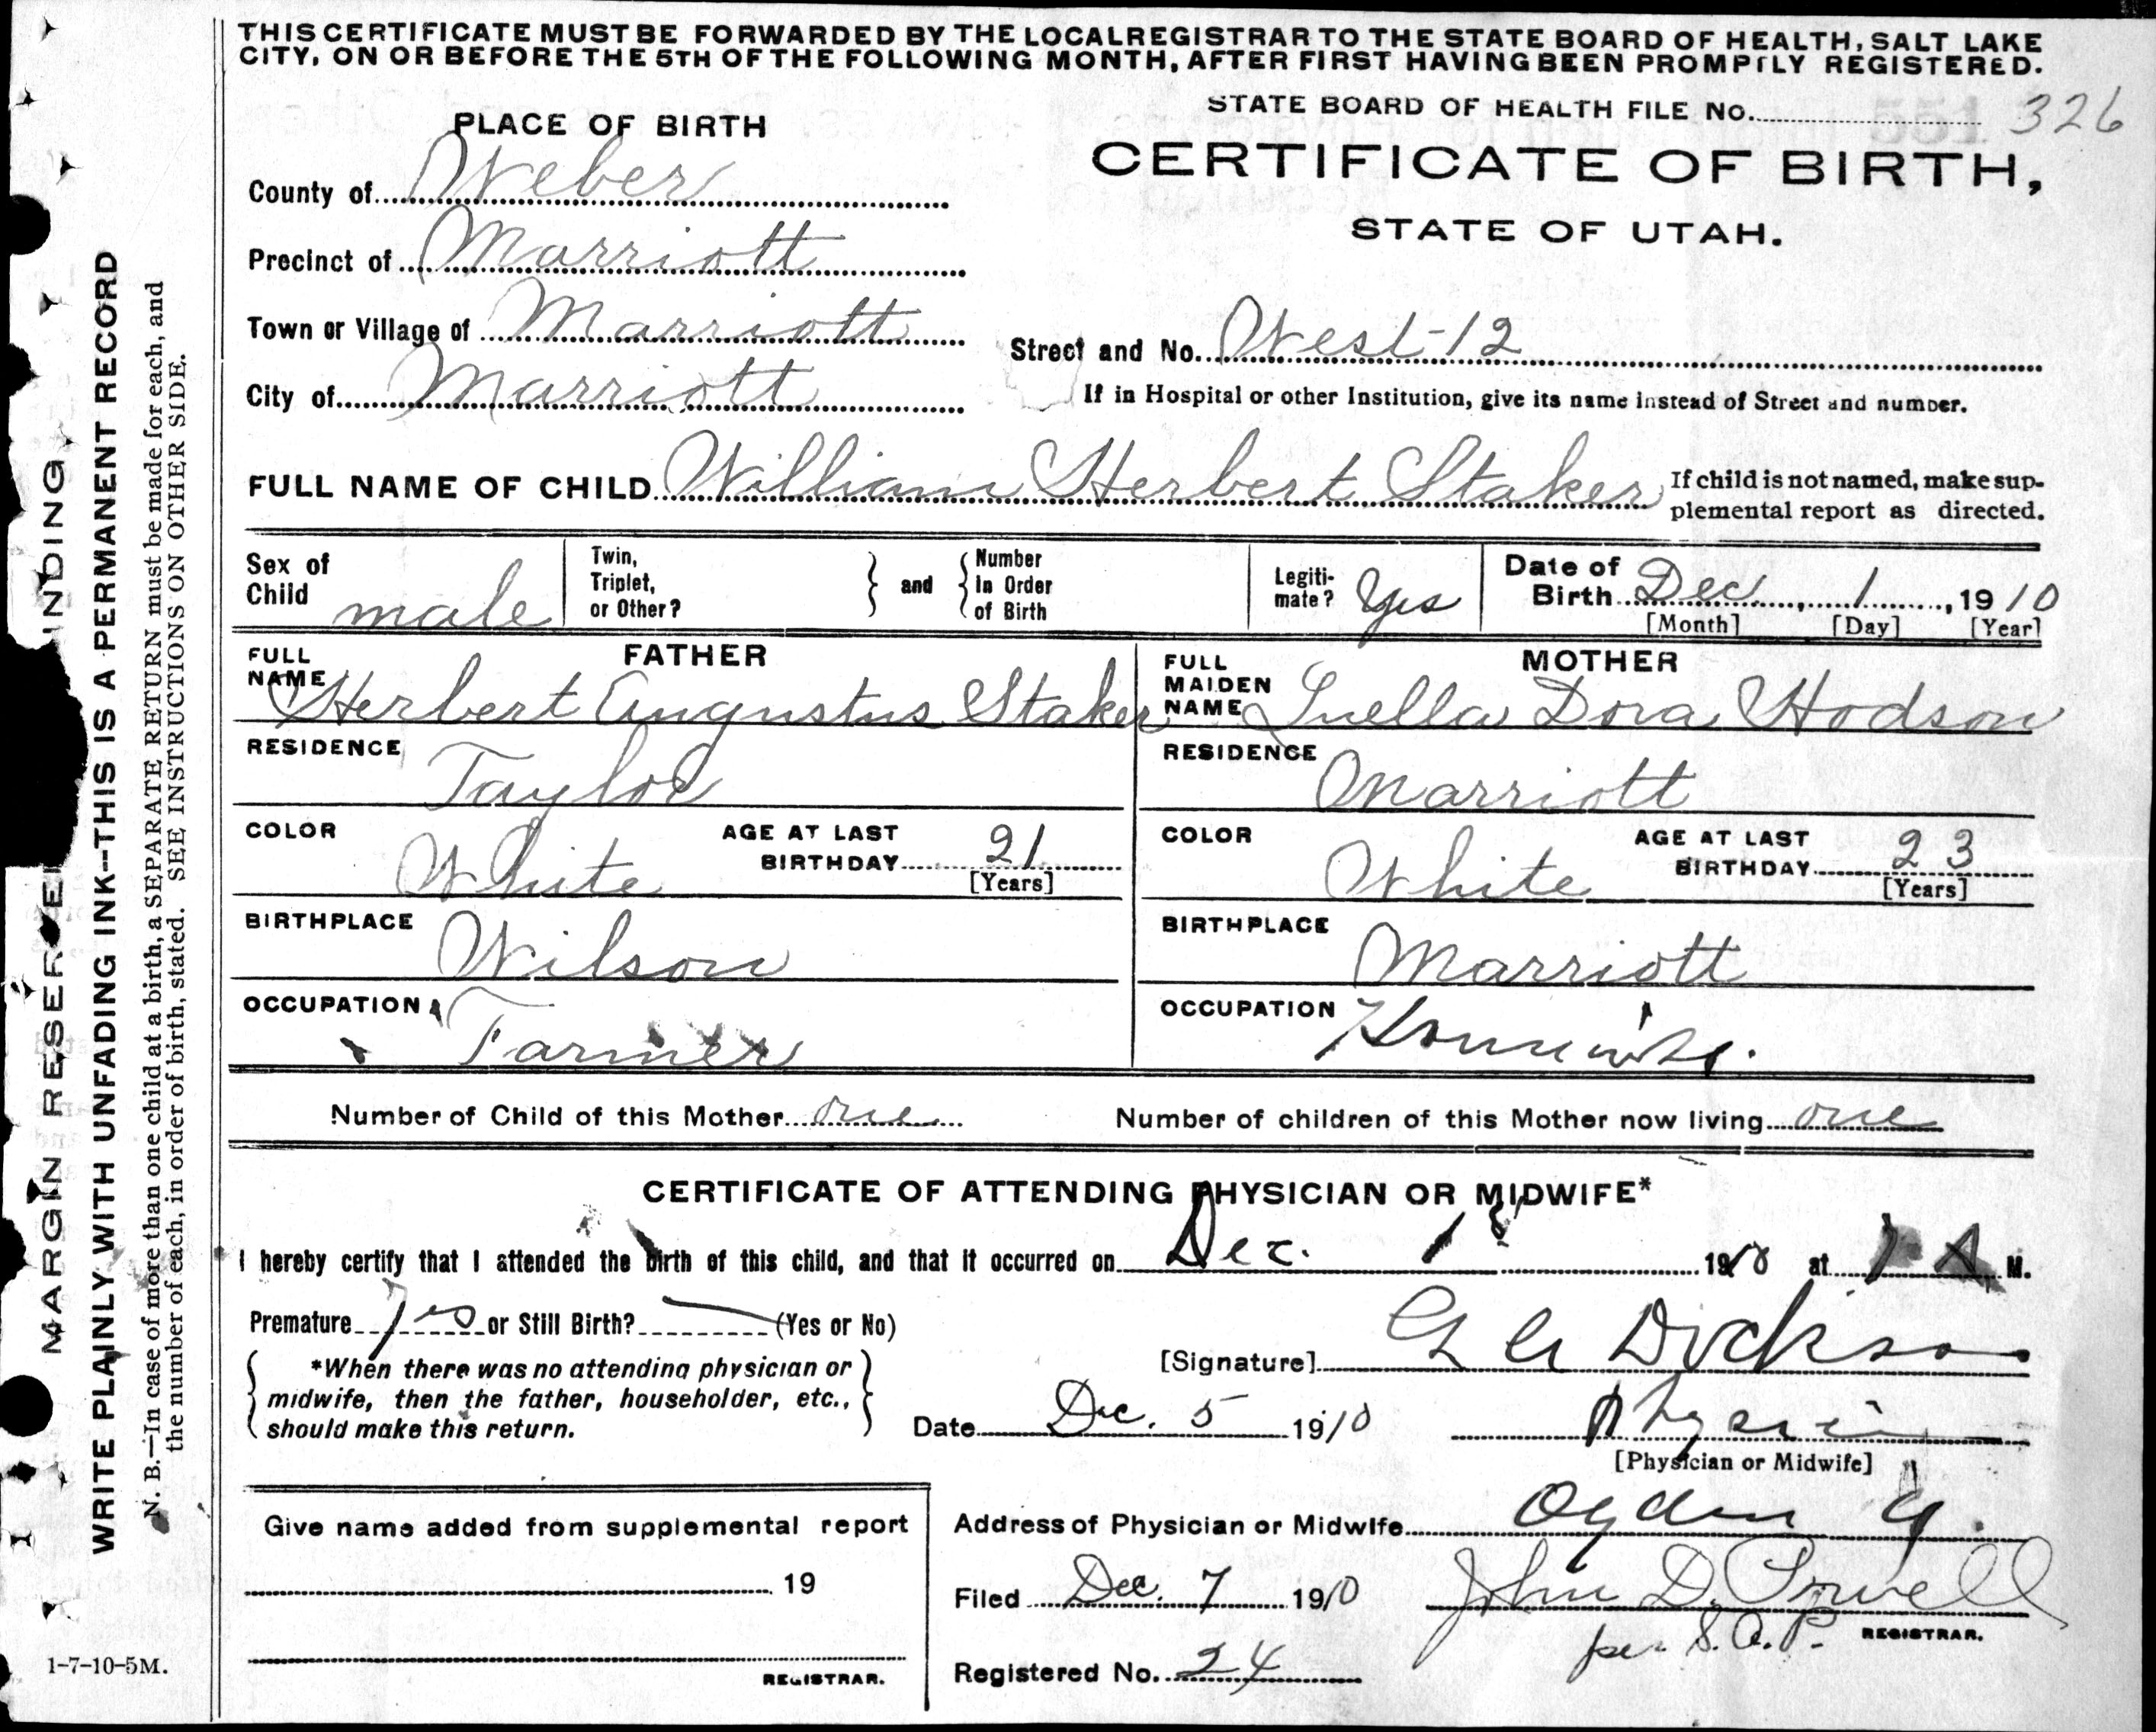 THIS CERTIFICATE MUST BE FORWARDED BY THE LOCAL REGISTRAR TO THE STATE BOARD OF HEALTH, SALT LAKE
CITY, ON OR BEFORE THE 5TH OF THE FOLLOWING MONTH, AFTER FIRST HAVING BEEN PROMPTLY REGISTERED.
STATE BOARD OF HEALTH FILE NO. 326
PLACE OF BIRTH
CERTIFICATE OF BIRTH,
STATE OF UTAH.
County of Weber
Precinct of Marriott
Town or Village of Marriott
Street and No. West-12
City of Marriott
If in Hospital or other Institution, give its name instead of Street and number.
FULL NAME OF CHILD William Herbert Staker
If child is not named, make sup-
plemental report as directed.
Sex of Child male
Twin, Triplet, or Other? } and { Number in Order of Birth
Legiti-mate? Yes
Date of Birth Dec, 1, 1910
[Month] [Day] [Year]
FATHER
FULL NAME Herbert Augustus Staker
RESIDENCE Taylor
COLOR White AGE AT LAST BIRTHDAY 21
[Years]
BIRTHPLACE Wilson
OCCUPATION Farmer
MOTHER
FULL MAIDEN NAME Luella Dora Hodson
RESIDENCE Marriott
COLOR White AGE AT LAST BIRTHDAY 23
[Years]
BIRTHPLACE Marriott
OCCUPATION Housewife.
Number of Child of this Mother one
Number of children of this Mother now living one
CERTIFICATE OF ATTENDING PHYSICIAN OR MIDWIFE*
I hereby certify that I attended the birth of this child, and that it occurred on Dec. 1st 1910 at 1 A M.
Premature yes or Still Birth? (Yes or No)
*When there was no attending physician or
midwife, then the father, householder, etc.,
should make this return.
[Signature] Dickson
Date Dec. 5 1910
[Physician or Midwife]
Give name added from supplemental report
19
REGISTRAR.
Address of Physician or Midwife Ogden
Filed Dec. 7 1910 John D. Powell
per S.A.P. REGISTRAR.
Registered No. 24
MARGIN RESERVED BINDING
WRITE PLAINLY WITH UNFADING INK--THIS IS A PERMANENT RECORD
N. B.—In case of more than one child at a birth, a SEPARATE RETURN must be made for each, and
the number of each, in order of birth, stated. SEE INSTRUCTIONS ON OTHER SIDE.
1-7-10-5M.